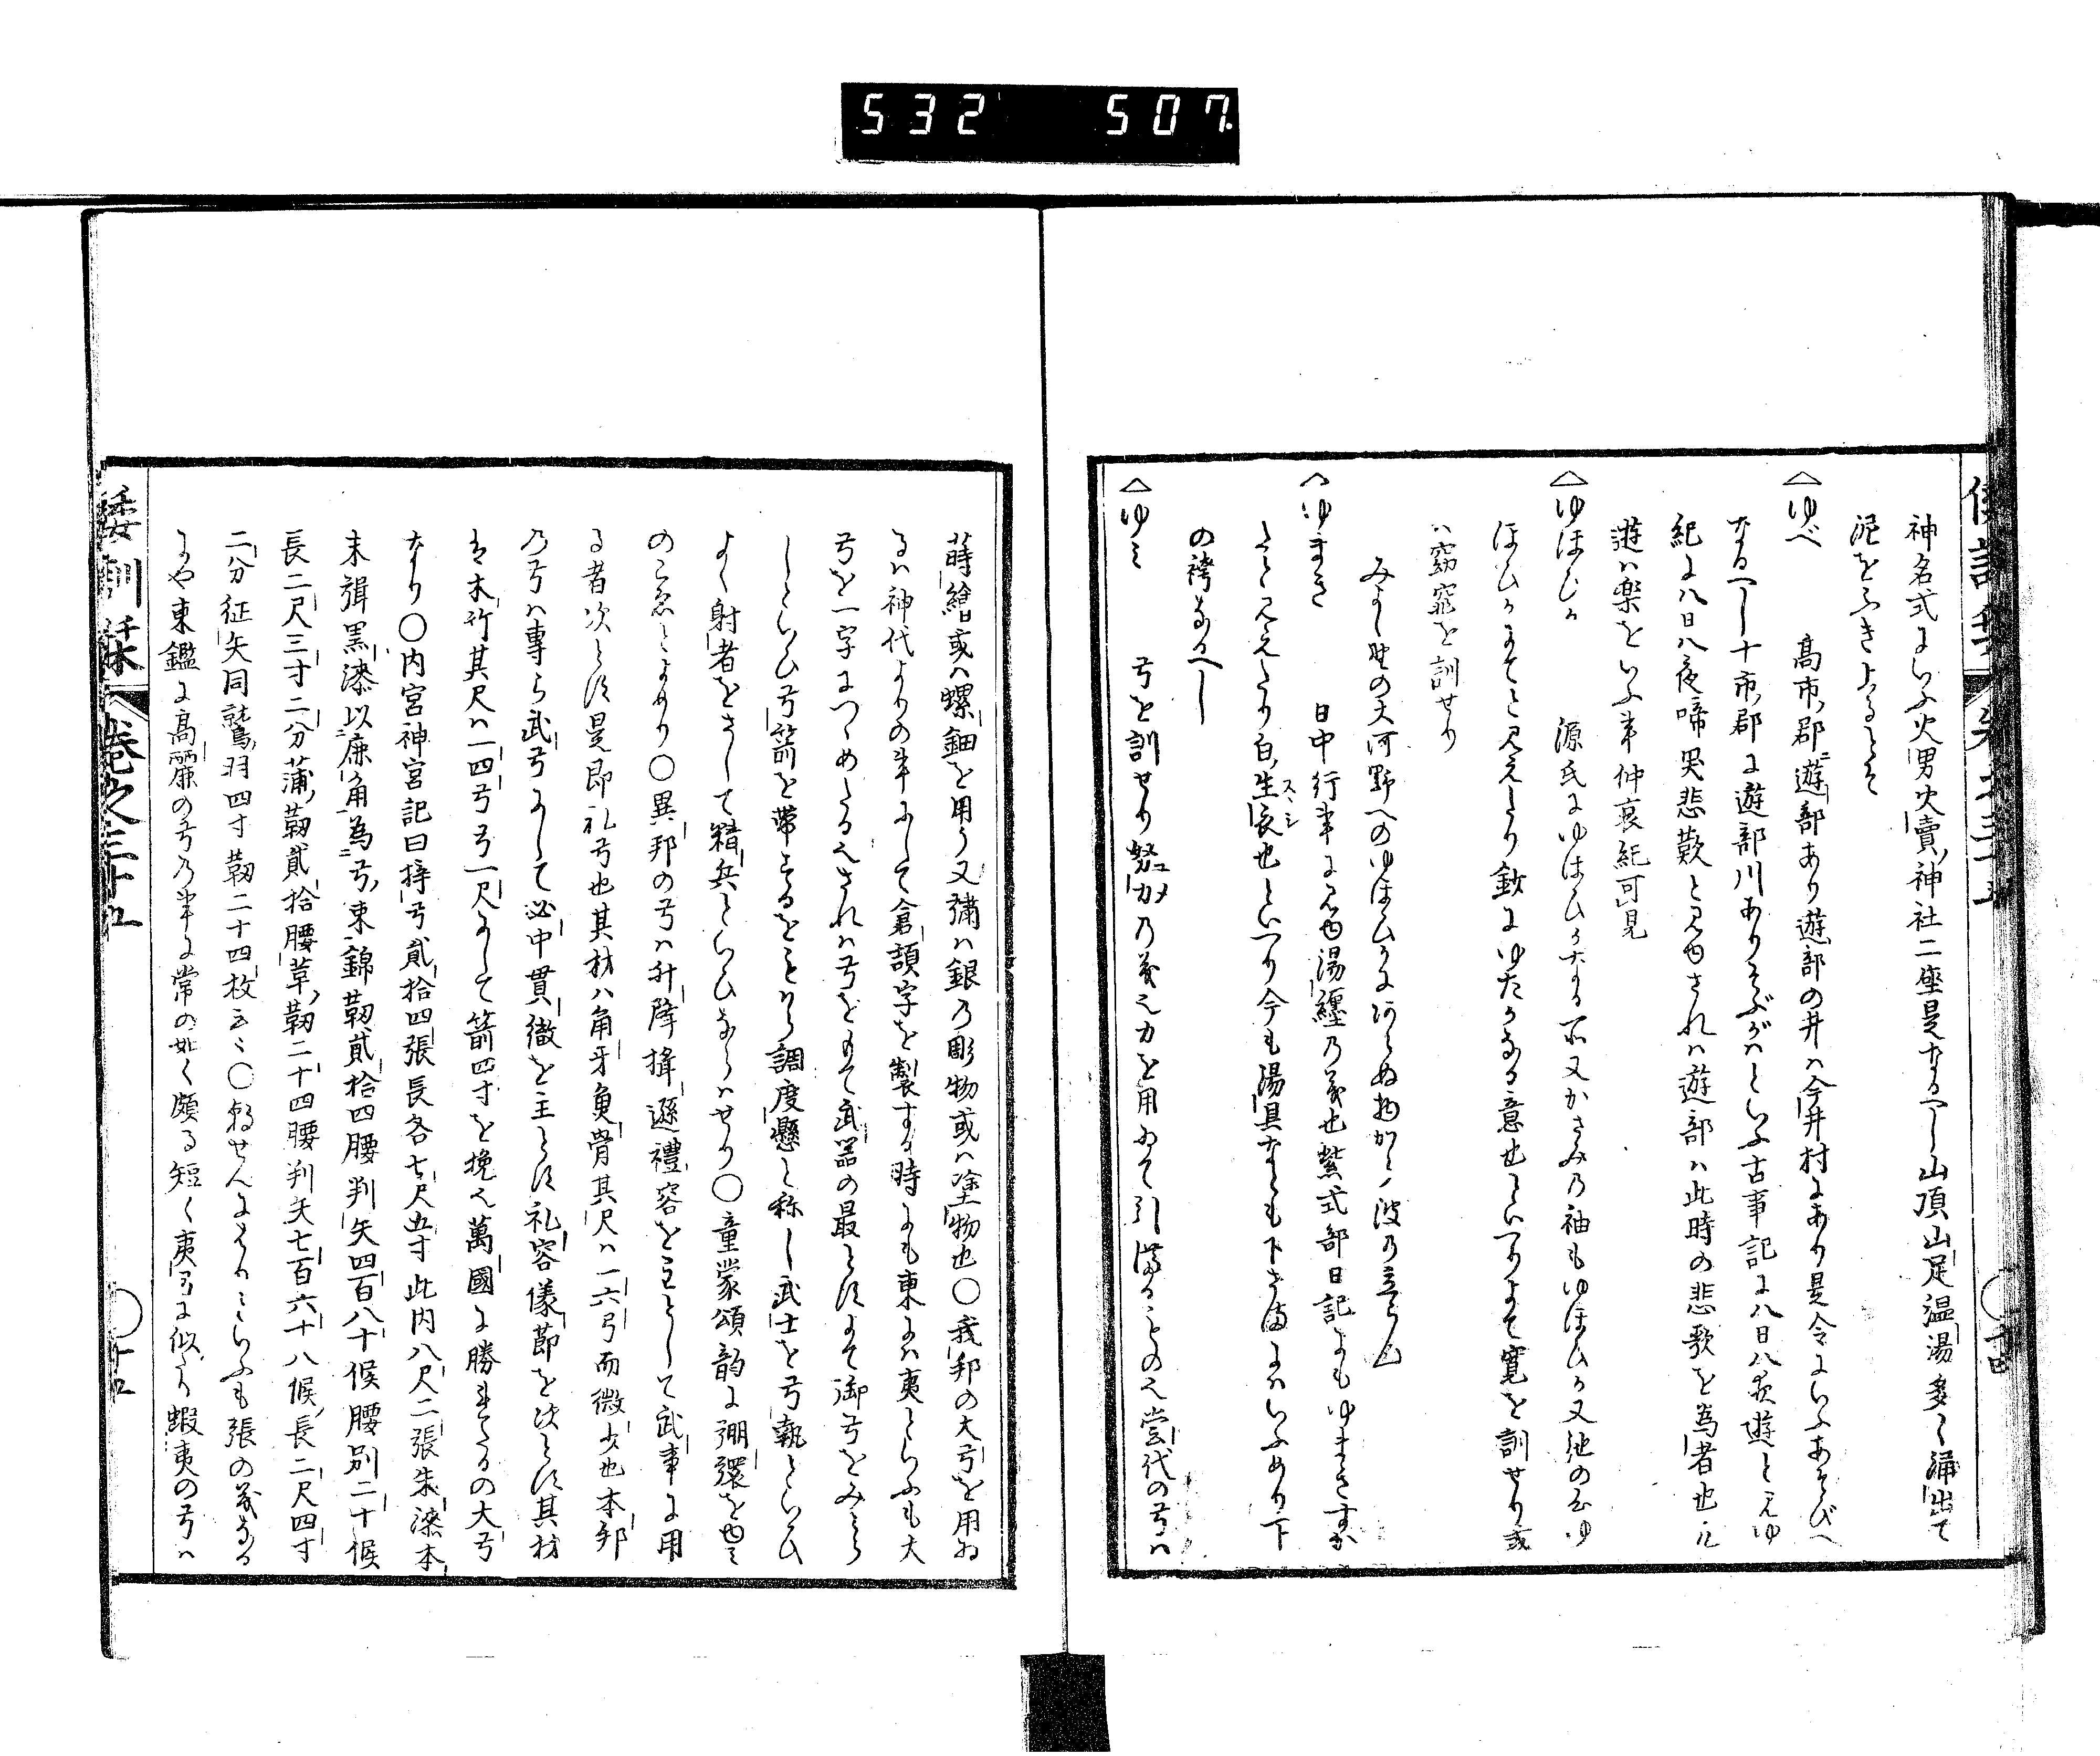 532 507
神名式にいふ火男火賣神社二座是なるへし山頂山足温湯多く涌出て
泥をふき上るとそ
△ゆべ 高市郡ニ遊部あり遊部の井ハ今井村にあり是令にいふあそびへ
なるへし十市郡に遊部川ありそぶがハといふ古事記に八日八夜遊と見ゆ
紀に八日八夜啼哭悲歎と見ゆされハ遊部ハ此時の悲歌を為者也凡
遊ハ楽をいふ事仲哀紀可見
△ゆほひか 源氏にゆほひかなる所又かさみの袖もゆほひか又池の心ゆ
ほひかにてと見えたり釵にゆたかなる意也といへりよて寛を訓せり或
ハ窈窕を訓せり
みよし野の大河野へのゆほひかにあらぬ物から波の立らん
△ゆまき 日中行事に見ゆ湯纏の義也紫式部日記にもゆまきすか
たと見えたり白生衣也といへり今も湯具なとも下さまにハいふめり下
の袴なるへし
△ゆミ 弓を訓せり努力の義也力を用ゐて引満ることの也当代の弓ハ
蒔繪或ハ螺鈿を用う又彇ハ銀の彫物或ハ塗物也〇我邦の大弓を用ゐ
るハ神代よりの事にして倉頡字を製する時にも東にハ夷といふも大
弓を一字につゝめたる也されハ弓をもて武器の最とすよて御弓をみたら
しといひ弓箭を帯するをことから調度懸と称し武士を弓執といひ
よく射者をさして精兵といひならハせり〇童蒙頌韵に弸彋をゆミ
のこゑとよめり〇異邦の弓ハ升降揖遜禮容を主として武事に用
る者次とす是即礼弓也其材ハ角牙魚骨其尺ハ一六弓而微少也本邦
乃弓ハ専ら武弓にして必中貫徹を主とす礼容儀節を次とす其材
ハ木竹其尺ハ一四弓弓一尺にして箭四寸を挽く萬國に勝れたるの大弓
なり〇内宮神宮記曰梓弓貳拾四張長各七尺五寸此内八尺二張朱漆本
末弭黒漆以麻角為弓束錦靱貳拾四腰判矢四百八十候腰別二十候
長二尺三寸二分蒲靱貳拾腰革靱二十四腰判矢七百六十八候長二尺四寸
二分征矢同鷲羽四寸靱二十四枚云々〇弱せんにはりといふも張の義なる
にや東鑑に高麗の弓の事に常の如く頗る短く夷弓に似たり蝦夷の弓ハ
倭訓栞 巻之三十五 〇十四
倭訓栞 巻之三十五 〇十五